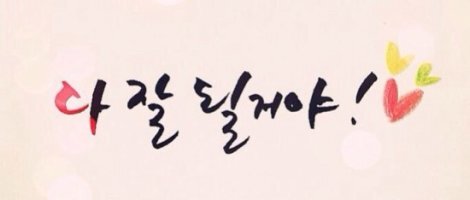 다 잘 될거야!